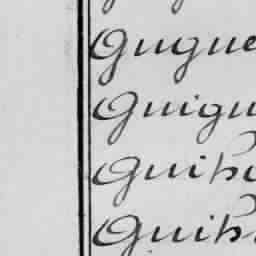 Gugue
Guigu
Guiho
Guih